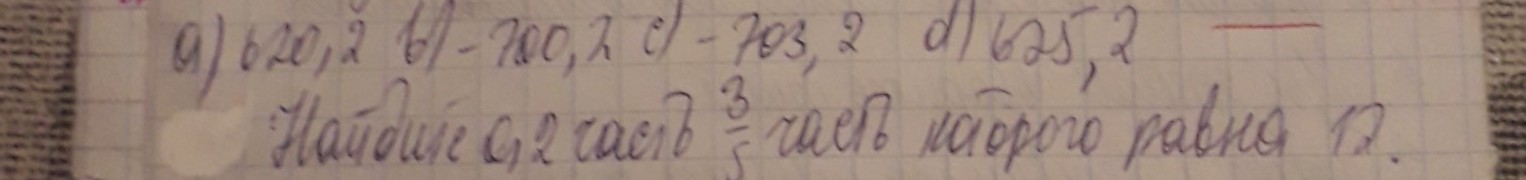 a) 620,2 b) -700,2 c) -703,2 d) 625,2
Найдите 0,2 часть 3/5 часть которого равна 12.